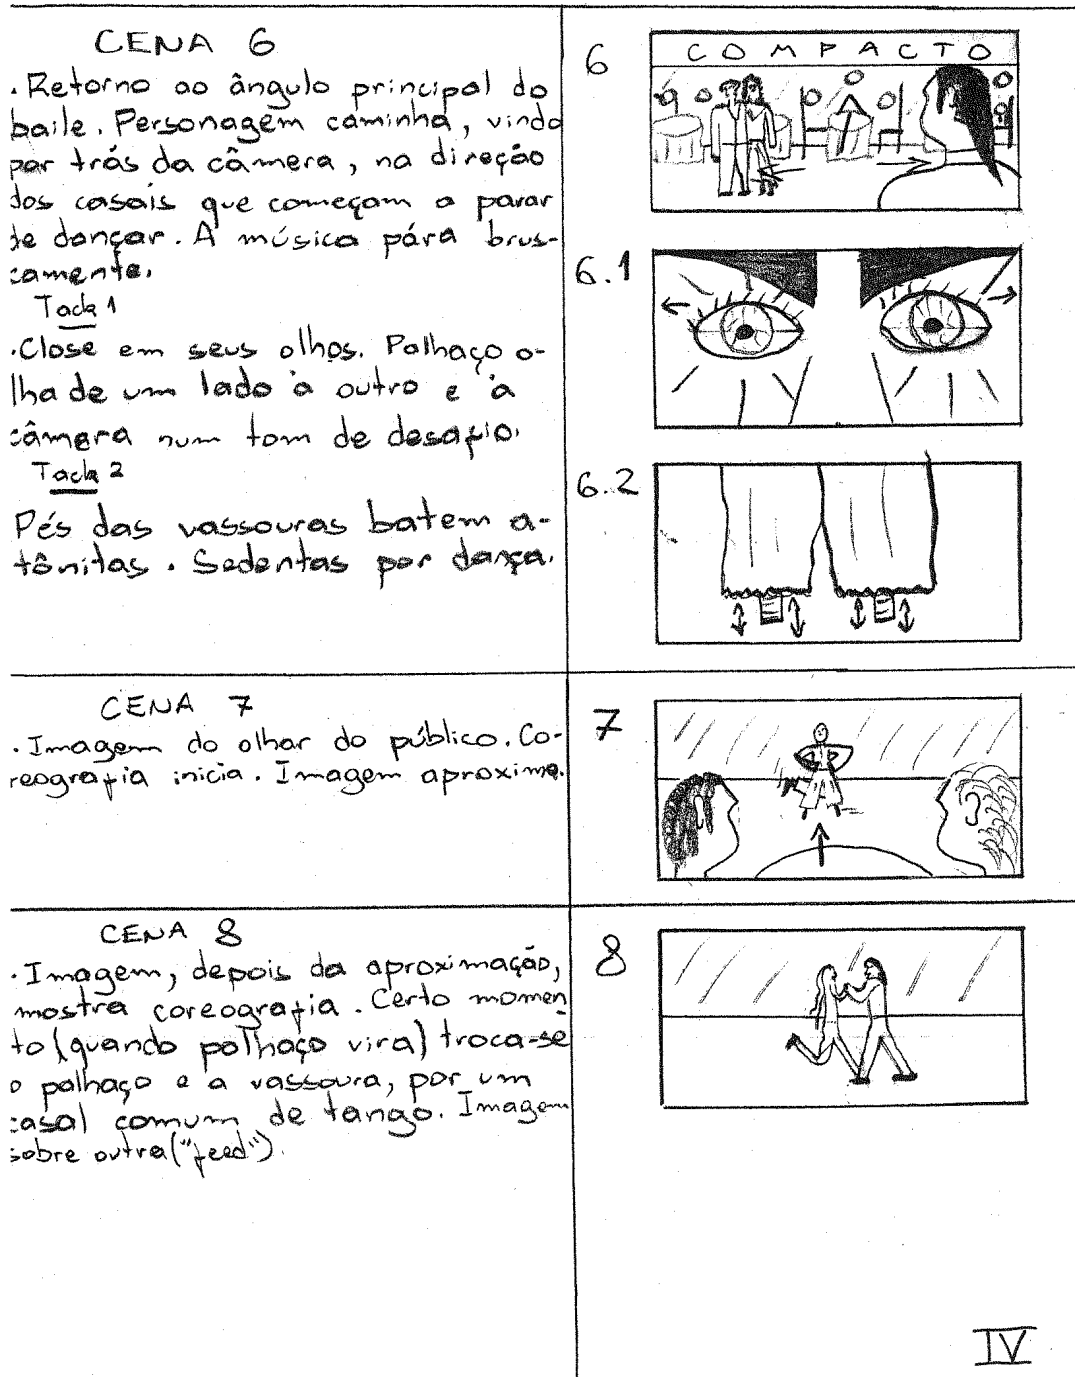 CENA 6
. Retorno ao ângulo principal do
baile. Personagem caminha, vindo
por trás da câmera, na direção
dos casais que começam a parar
de dançar. A música pára brus-
camente.
Tack 1
. Close em seus olhos. Palhaço o-
lha de um lado à outro e à
câmera num tom de desafio.
Tack 2
Pés das vassouras batem a-
tônitas. Sedentas por dança.
6
COMPACTO
6.1
6.2
CENA 7
. Imagem do olhar do público. Co-
reografia inicia. Imagem aproxima.
7
CENA 8
. Imagem, depois da aproximação,
mostra coreografia. Certo momen
to (quando palhaço vira) troca-se
o palhaço e a vassoura, por um
casal comum de tango. Imagem
sobre outra ("feed").
8
IV